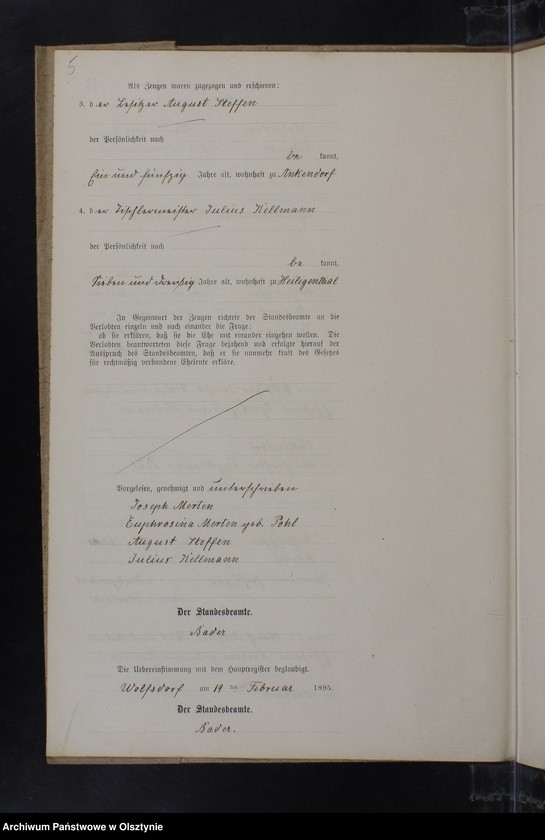 5
Als Zeugen waren zugezogen und erschienen:
3. der Besitzer August Steffen
der Persönlichkeit nach
be kannt,
Ein und fünfzig Jahre alt, wohnhaft zu Ankendorf
4. der Tischlermeister Julius Kellmann
der Persönlichkeit nach
be kannt,
Sieben und dreißig Jahre alt, wohnhaft zu Heiligenthal
In Gegenwart der Zeugen richtete der Standesbeamte an die
Verlobten einzeln und nach einander die Frage:
ob sie erklären, daß sie die Ehe mit einander eingehen wollen. Die
Verlobten beantworteten diese Frage bejahend und erfolgte hierauf der
Ausspruch des Standesbeamten, daß er sie nunmehr kraft des Gesetzes
für rechtmäßig verbundene Eheleute erkläre.
Vorgelesen, genehmigt und unterschrieben
Joseph Merten
Euphrosina Merten geb. Pohl
August Steffen
Julius Kellmann
Der Standesbeamte.
Bader
Die Uebereinstimmung mit dem Hauptregister beglaubigt.
Wolfsdorf am 19 ten Februar 1895.
Der Standesbeamte.
Bader.
Archiwum Państwowe w Olsztynie